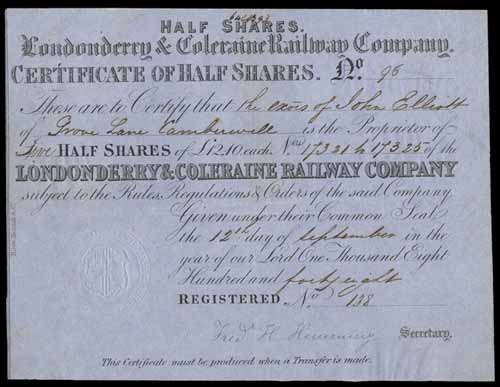 HALF SHARES.
Londonderry & Coleraine Railway Company.
CERTIFICATE OF HALF SHARES. No. 96
These are to Certify that the exors of John Elliott
of Grove Lane Camberwell is the Proprietor of
five HALF SHARES of £12.10 each Nos 17321 to 17325 of the
LONDONDERRY & COLERAINE RAILWAY COMPANY
subject to the Rules, Regulations & Orders of the said Company.
Given under their Common Seal
the 12th day of September in the
year of our Lord One Thousand Eight
Hundred and forty eight
REGISTERED No. 138
Fredk H Secretary.
This Certificate must be produced when a Transfer is made.